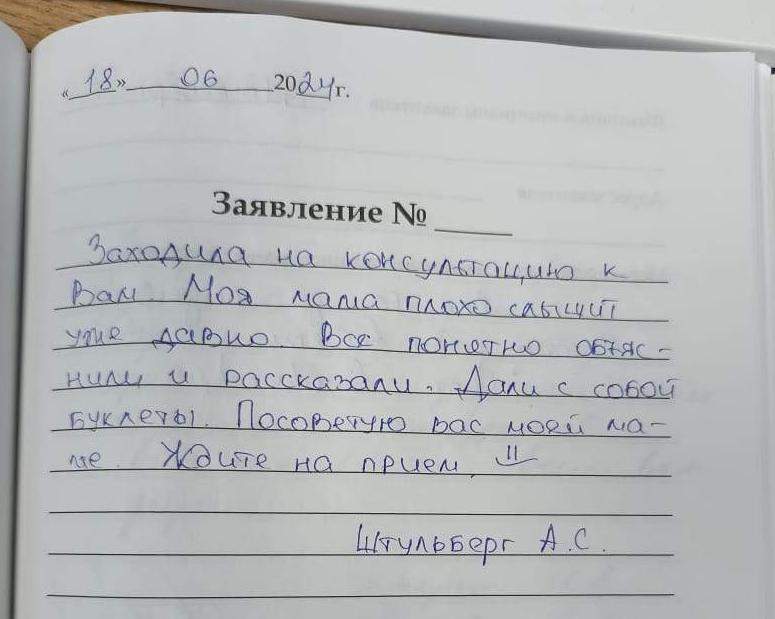 «18» 06 2024г.
Заявление №
Заходила на консультацию к
Вам. Моя мама плохо слышит
уже давно. Все понятно объяс-
нили и рассказали. Дали с собой
буклеты. Посоветую вас моей ма-
ме. Ждите на прием
Штульберг А.С.